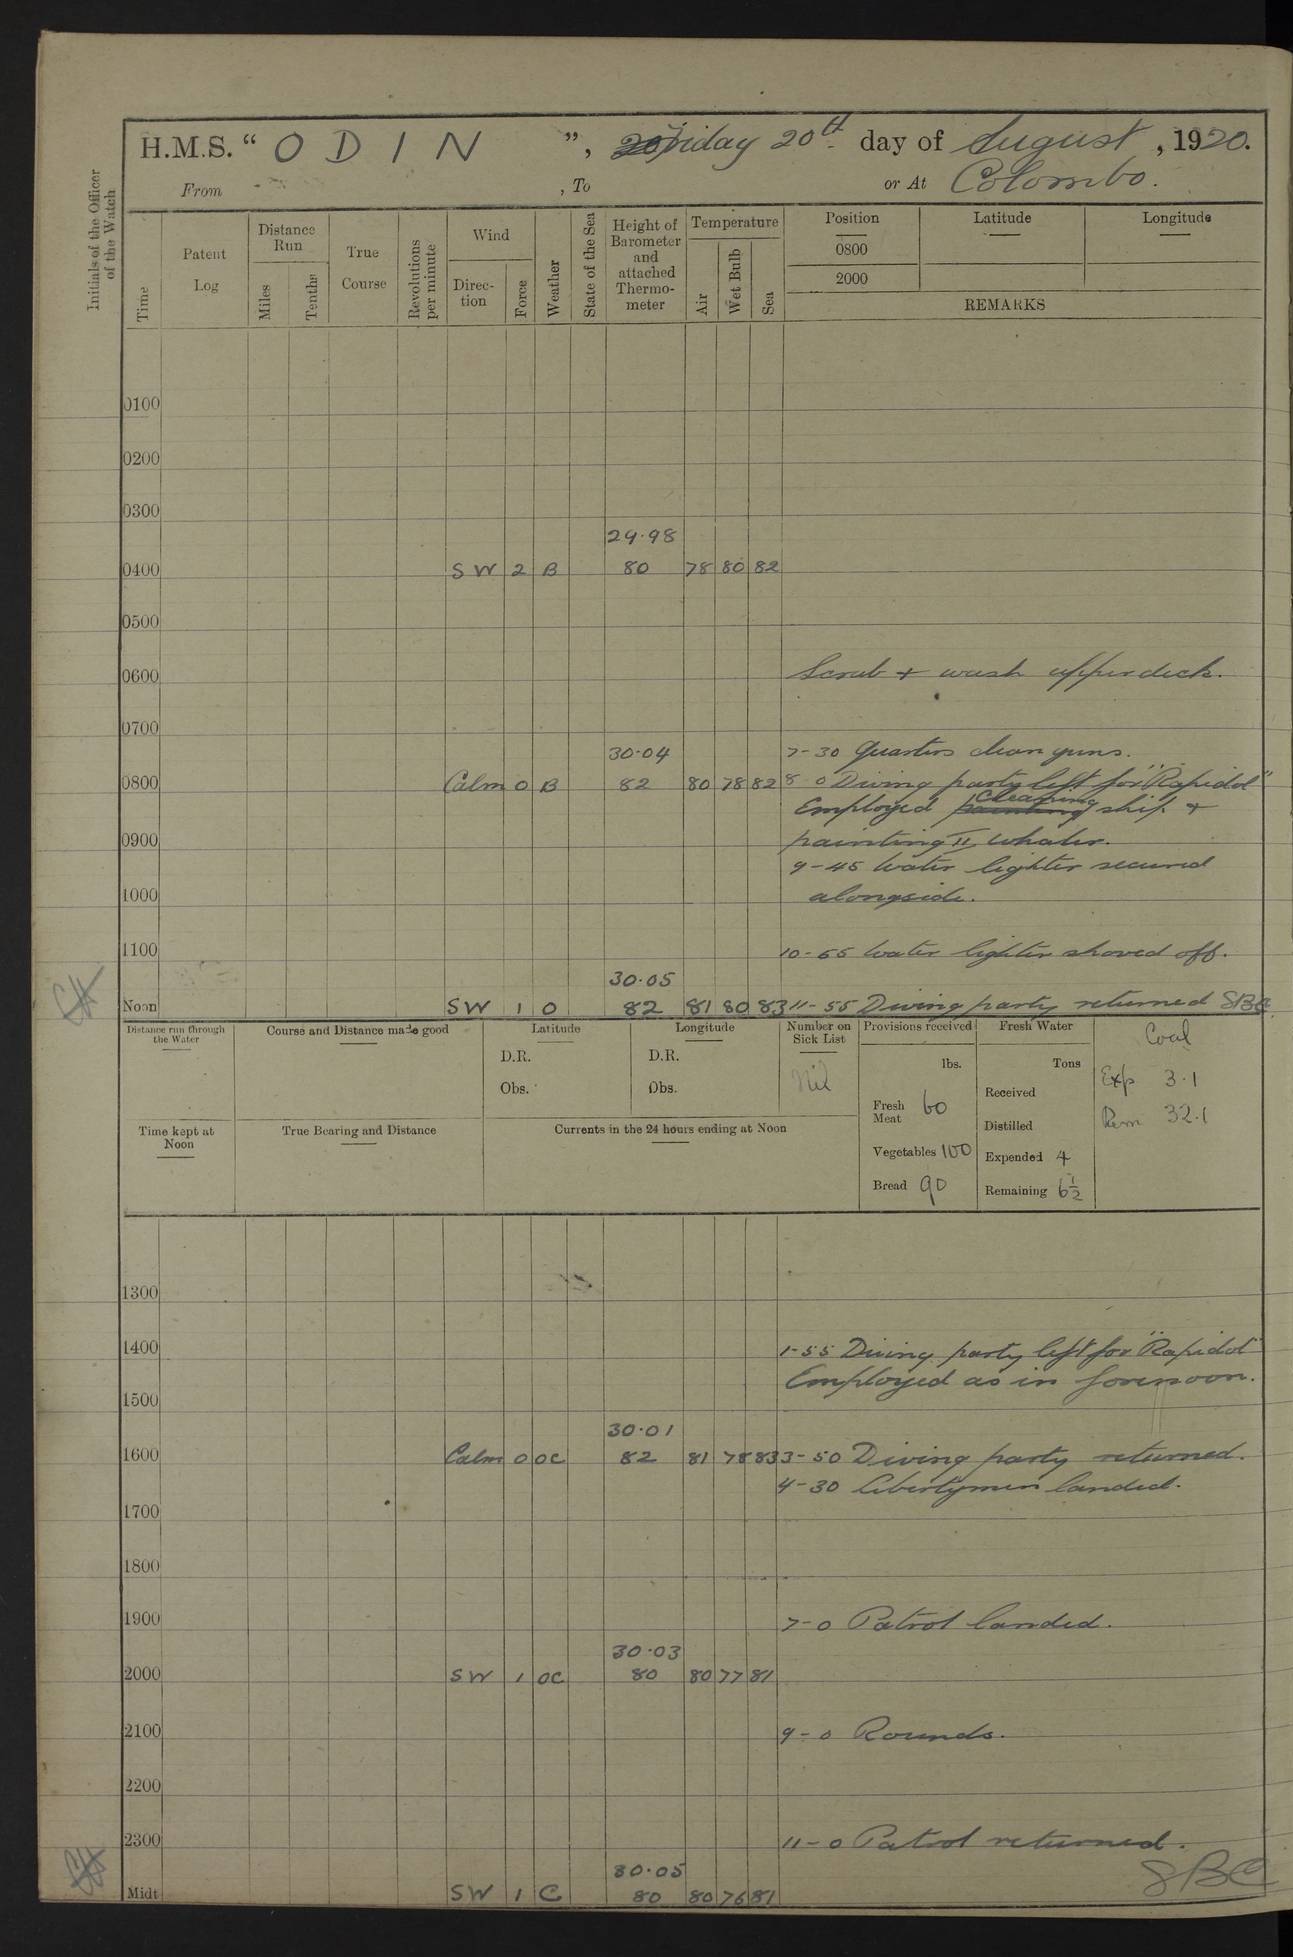 H.M.S. “ O D I N ”, Friday 20th day of August, 1920.
From , To or At Colombo.
Initials of the Officer of the Watch
Time
Patent Log
Distance Run
Miles
Tenths
True Course
Revolutions per minute
Wind
Direction
Force
Weather
State of the Sea
Height of Barometer and attached Thermometer
Temperature
Air
Wet Bulb
Sea
Position
0800
2000
Latitude
Longitude
REMARKS
0100
0200
0300
29.98
0400 SW 2 B 80 78 80 82
0500
0600 Scrub + wash upper deck.
0700
30.04 7-30 Quarters clean guns.
0800 Calm 0 B 82 80 78 82 8-0 Diving party left for "Rapidol"
Employed painting cleaning ship +
0900 painting II whaler.
9-45 Water lighter secured
1000 alongside.
1100 10-55 Water lighter shoved off.
30.05
Noon SW 1 O 82 81 80 83 11-55 Diving party returned SBC
Distance run through the Water
Course and Distance made good
Latitude
D.R.
Obs.
Longitude
D.R.
Obs.
Number on Sick List
Nil
Provisions received
lbs.
Fresh Meat 60
Vegetables 100
Bread 90
Fresh Water
Tons
Received
Distilled
Expended 4
Remaining 6½
Coal
Exp 3.1
Rem 32.1
Time kept at Noon
True Bearing and Distance
Currents in the 24 hours ending at Noon
1300
1400 1-55 Diving party left for "Rapidol"
Employed as in forenoon.
1500
30.01
1600 Calm 0 OC 82 81 78 83 3-50 Diving party returned.
4-30 Libertymen landed.
1700
1800
1900 7-0 Patrol landed.
30.03
2000 SW 1 OC 80 80 77 81
2100 9-0 Rounds.
2200
2300 11-0 Patrol returned.
30.05 SBC
Midt SW 1 C 80 80 76 81